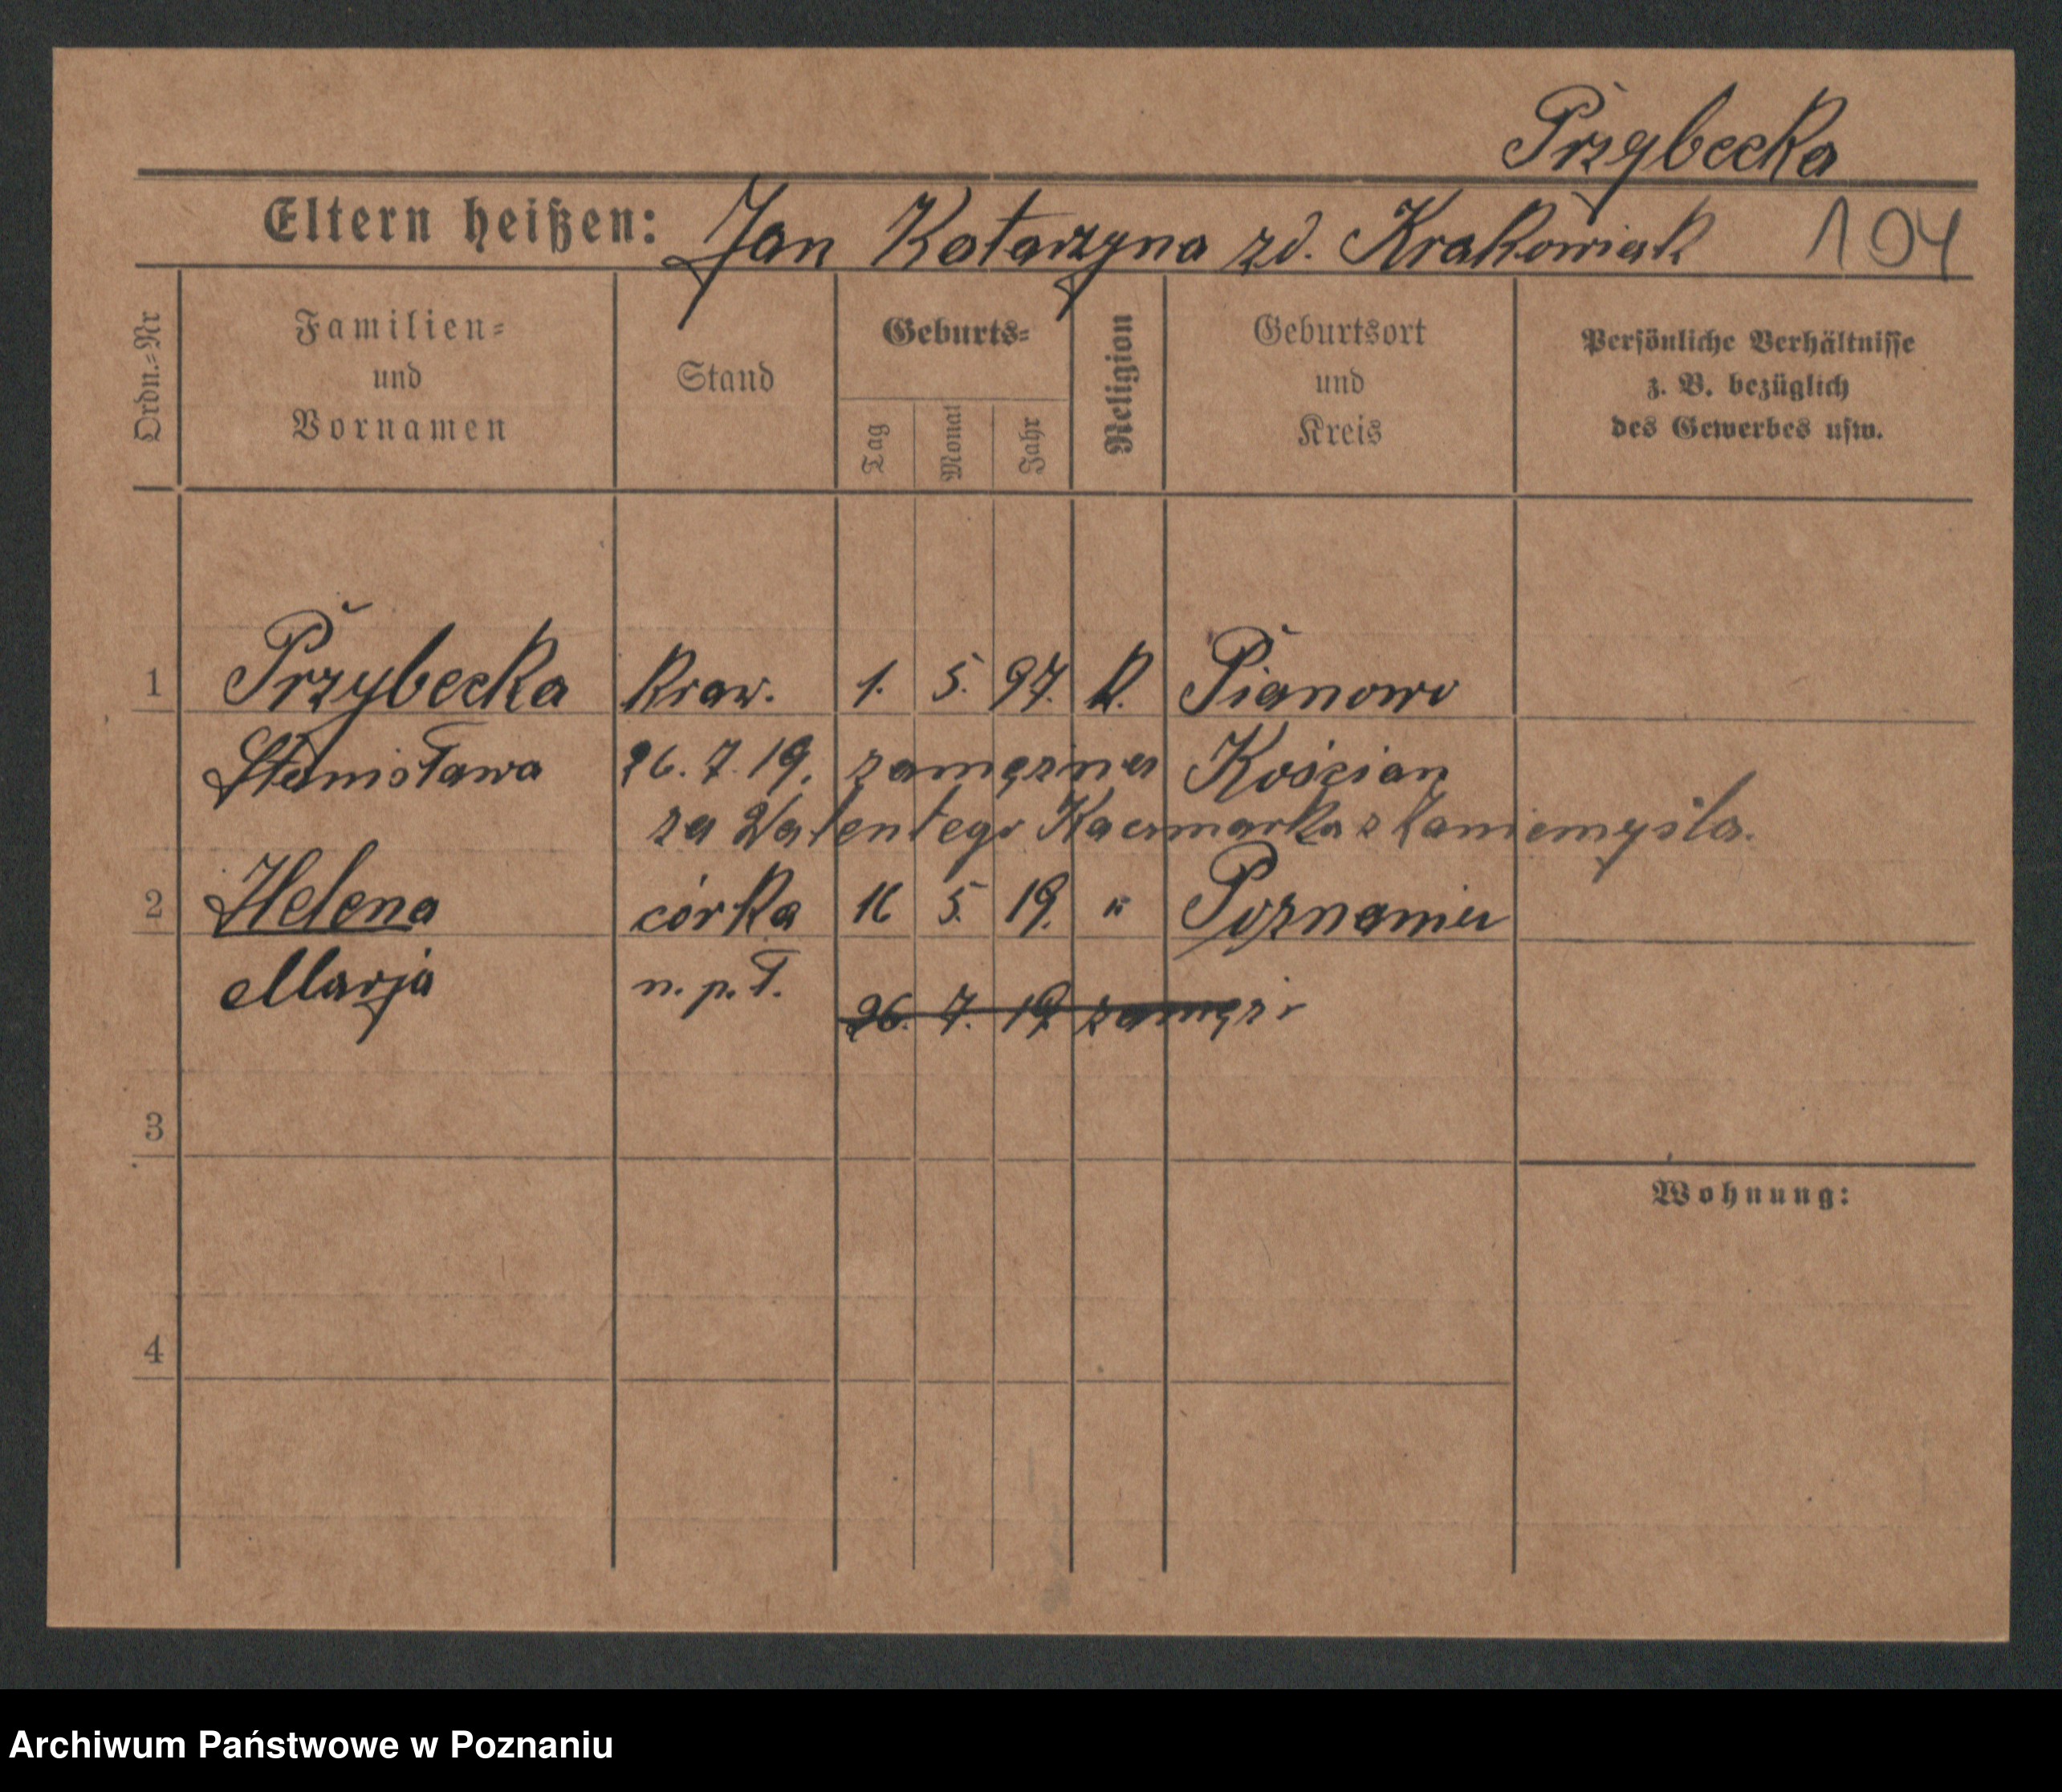 Przybecka
Eltern heißen: Jan Katarzyna zd. Krakowiak 104
Ordn.=Nr
Familien=
und
Vornamen
Stand
Geburts=
Tag
Monat
Jahr
Religion
Geburtsort
und
Kreis
Persönliche Verhältnisse
z. B. bezüglich
des Gewerbes usw.
1 Przybecka Kraw. 1. 5. 97. K. Pianowo
Stanisława 26. 7. 19. zamężna Kościan
za Walentego Kaczmarka z Zaniemyśla.
2 Helena córka 16 5. 19. " Poznaniu
Marja n. p. ł. 26. 7. 19
3
Wohnung:
4
Archiwum Państwowe w Poznaniu